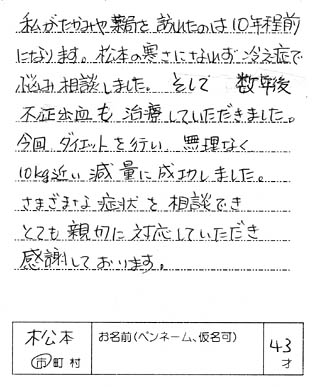 私がたかみや薬局を訪れたのは10年程前
になります。松本の寒さになれず冷え症で
悩み相談しました。そして 数年後
不正出血も治療していただきました。
今回 ダイエットを行い 無理なく
10kg近い減量に成功しました。
さまざまな症状を相談でき
とても親切に対応していただき
感謝しております。
松本 お名前(ペンネーム、仮名可) 43
市町村 才